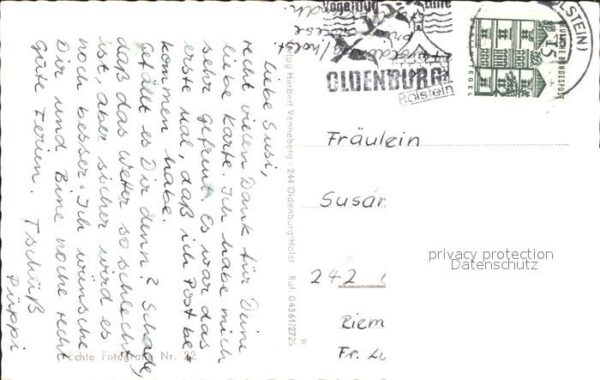 Liebe Susi,
recht vielen Dank für Deine
liebe Karte. Ich habe mich
sehr gefreut. Es war das
erste mal, daß ich Post be=
kommen habe.
gefällt es Dir denn? Schade,
daß das Wetter so schlecht
ist, aber sicher wird es
noch besser. Ich wünsche
Dir und Bine noche recht
gute Ferien. Tschüß
Püppi
Echte Fotografie Nr. 22
Herbert Venneberg - 244 Oldenburg/Holst Ruf: 04361/2729
Vogelflug Linie
OLDENBURG
Holstein
HOLSTEIN)
15
DEUTSCHE BUNDESPOST
TEGEL
Fräulein
Susan
242
Riem
Fr.
privacy protection
Datenschutz